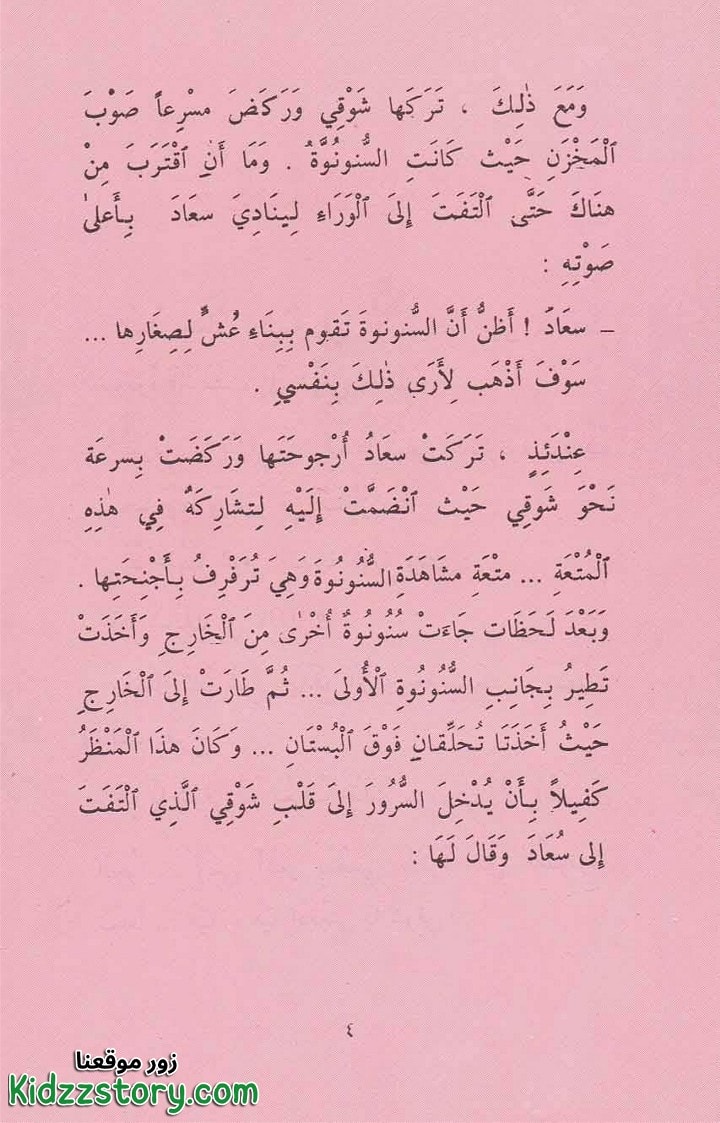 وَمَعَ ذٰلِكَ ، تَرَكَها شَوْقِي وَرَكَضَ مسْرِعاً صَوْبَ
ٱلْمَخْزَنِ حَيْث كَانَتِ السُّنونُوَّةُ . وَمَا أَنِ ٱقْتَرَبَ مِنْ
هنَاكَ حَتَّى ٱلْتَفَتَ إِلىَ ٱلْوَرَاءِ لِينَادِيَ سعَادَ بِأَعلىٰ
صَوْتِهِ :
– سعَادُ ! أَظنُّ أَنَّ السُّنونوةَ تَقوم بِبِنَاءِ عُشٍّ لِصِغَارِها ...
سَوْفَ أَذْهَب لِأَرَى ذٰلِكَ بِنَفْسيِ .
عِنْدَئِذٍ ، تَرَكَتْ سعَادُ أُرْجوحَتَها وَرَكَضَتْ بِسرعَة
نَحْوَ شَوقِي حَيْث ٱنْضَمَّتْ إِلَيْهِ لِتشَارِكَهُ فيِ هٰذِهِ
ٱلْمُتْعَةِ ... متْعَةِ مشَاهَدَةِ السُّنُونُوَةَ وَهِيَ تُرَفْرِفُ بِأَجْنِحَتِها .
وَبَعْدَ لَحَظَات جَاءَتْ سُنُونُوةٌ أُخْرٰى مِنَ ٱلْخَارِجِ وَأَخَذَتْ
تَطِيرُ بِجَانِبِ السُّنُونُوةِ ٱلْأُولىَ ... ثُمَّ طَارَتْ إِلىَ ٱلْخَارِجِ
حَيْثُ أَخَذَتَا تُحَلِّقانِ فَوْقَ ٱلْبُسْتَانِ ... وَكَانَ هذَا ٱلْمَنْظَرُ
كَفِيلاً بِأَنْ يُدْخِلَ السُّرُورَ إِلىَ قَلْبِ شَوْقِي ٱلَّذِي ٱلْتَفَتَ
إِلى سُعَادَ وَقَالَ لَهَا :
٤
زور موقعنا
Kidzzstory.com